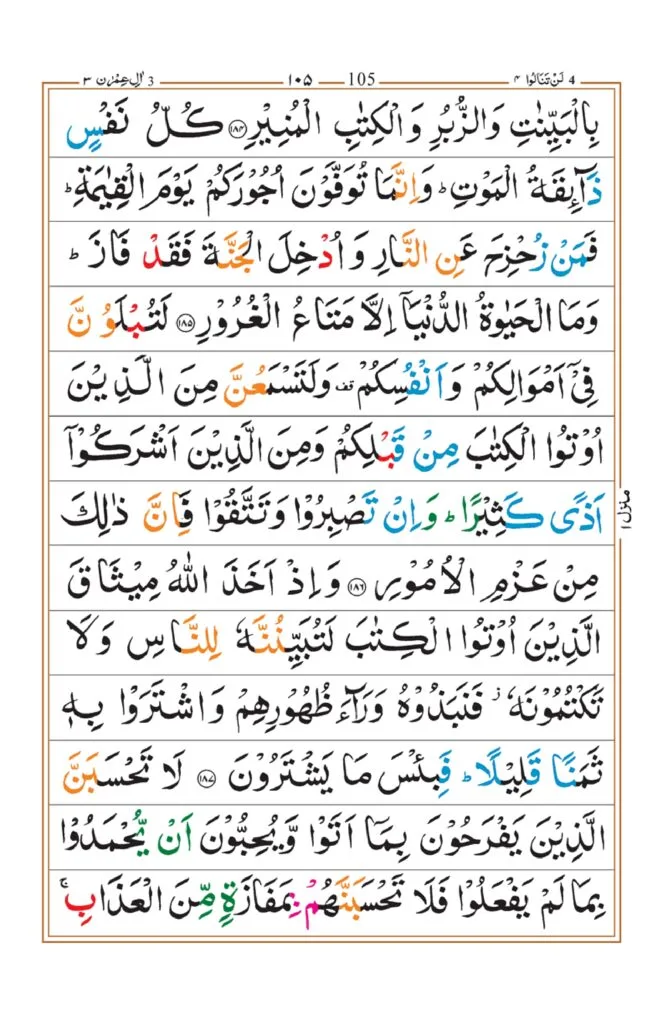 3 اٰلِ عِمْرٰن ٣ ١٠٥ 105 4 لَنْ تَنَالُوا ٤
بِالْبَيِّنٰتِ وَالزُّبُرِ وَالْكِتٰبِ الْمُنِيْرِ ﴿١٨٤﴾ كُلُّ نَفْسٍ
ذَآئِقَةُ الْمَوْتِ ؕ وَاِنَّمَا تُوَفَّوْنَ اُجُوْرَكُمْ يَوْمَ الْقِيٰمَةِ ؕ
فَمَنْ زُحْزِحَ عَنِ النَّارِ وَاُدْخِلَ الْجَنَّةَ فَقَدْ فَازَ ؕ
وَمَا الْحَيٰوةُ الدُّنْيَاۤ اِلَّا مَتَاعُ الْغُرُوْرِ ﴿١٨٥﴾ لَتُبْلَوُنَّ
فِيْۤ اَمْوَالِكُمْ وَاَنْفُسِكُمْ قف وَلَتَسْمَعُنَّ مِنَ الَّذِيْنَ
اُوْتُوا الْكِتٰبَ مِنْ قَبْلِكُمْ وَمِنَ الَّذِيْنَ اَشْرَكُوْۤا
اَذًى كَثِيْرًا ؕ وَاِنْ تَصْبِرُوْا وَتَتَّقُوْا فَاِنَّ ذٰلِكَ
مِنْ عَزْمِ الْاُمُوْرِ ﴿١٨٦﴾ وَاِذْ اَخَذَ اللّٰهُ مِيْثَاقَ
الَّذِيْنَ اُوْتُوا الْكِتٰبَ لَتُبَيِّنُنَّهٗ لِلنَّاسِ وَلَا
تَكْتُمُوْنَهٗ ؗ فَنَبَذُوْهُ وَرَآءَ ظُهُوْرِهِمْ وَاشْتَرَوْا بِهٖ
ثَمَنًا قَلِيْلًا ؕ فَبِئْسَ مَا يَشْتَرُوْنَ ﴿١٨٧﴾ لَا تَحْسَبَنَّ
الَّذِيْنَ يَفْرَحُوْنَ بِمَاۤ اَتَوْا وَّيُحِبُّوْنَ اَنْ يُّحْمَدُوْا
بِمَا لَمْ يَفْعَلُوْا فَلَا تَحْسَبَنَّهُمْ بِمَفَازَةٍ مِّنَ الْعَذَابِ ۚ
منزل ١